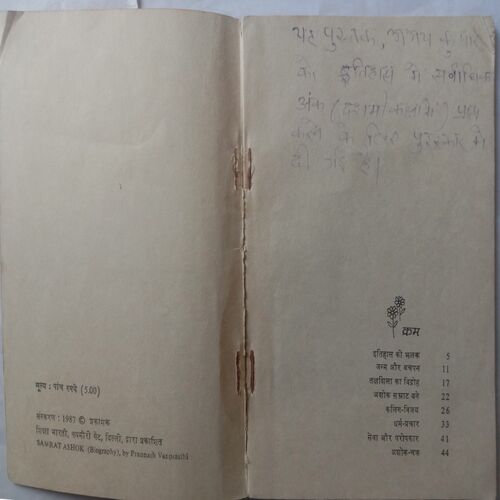 मूल्य : पांच रुपये (5.00)
संस्करण : 1987 © प्रकाशक
शिक्षा भारती, कश्मीरी गेट, दिल्ली, द्वारा प्रकाशित
SAMRAT ASHOK (Biography), by Prannath Vanprasthi
यह पुस्तक, अजय कुमार
को इतिहास में सर्वाधिक
अंक (दशम कक्षा में) प्राप्त
करने के लिए पुरस्कार में
दी गई है।
क्रम
इतिहास की झलक 5
जन्म और बचपन 11
तक्षशिला का विद्रोह 17
अशोक सम्राट बने 22
कलिंग-विजय 26
धर्म-प्रचार 33
सेवा और परोपकार 41
अशोक-चक्र 44